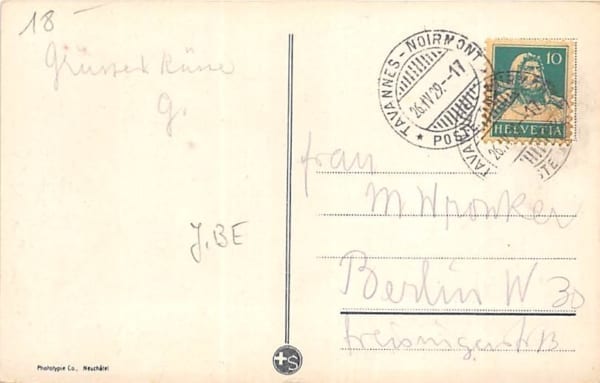 18-
Grüsse & Küsse
G.
J. BE
Phototypie Co., Neuchâtel
+S
TAVANNES - NOIRMONT
26.IV.29.-17
★ POSTE
10
HELVETIA
Frau
M
Berlin W 30